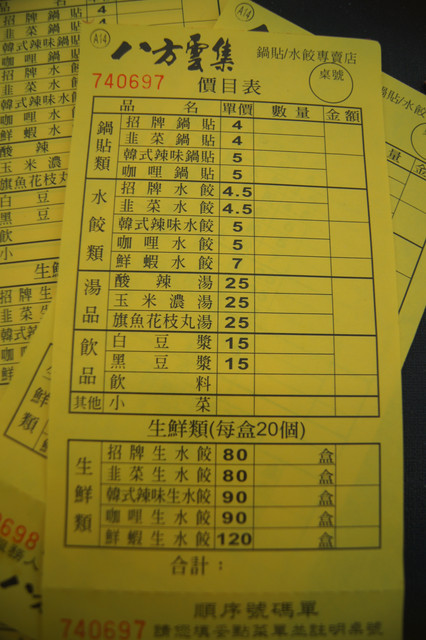 A14
八方雲集
鍋貼/水餃專賣店
740697
價目表
桌號
品 名 單價 數量 金額
鍋貼類
招牌鍋貼 4
韭菜鍋貼 4
韓式辣味鍋貼 5
咖哩鍋貼 5
水餃類
招牌水餃 4.5
韭菜水餃 4.5
韓式辣味水餃 5
咖哩水餃 5
鮮蝦水餃 7
湯品
酸辣湯 25
玉米濃湯 25
旗魚花枝丸湯 25
飲品
白豆漿 15
黑豆漿 15
飲料
其他 小菜
生鮮類(每盒20個)
生鮮類
招牌生水餃 80 盒
韭菜生水餃 80 盒
韓式辣味生水餃 90 盒
咖哩生水餃 90 盒
鮮蝦生水餃 120 盒
合計：
順序號碼單
740697 請您填妥點菜單並註明桌號